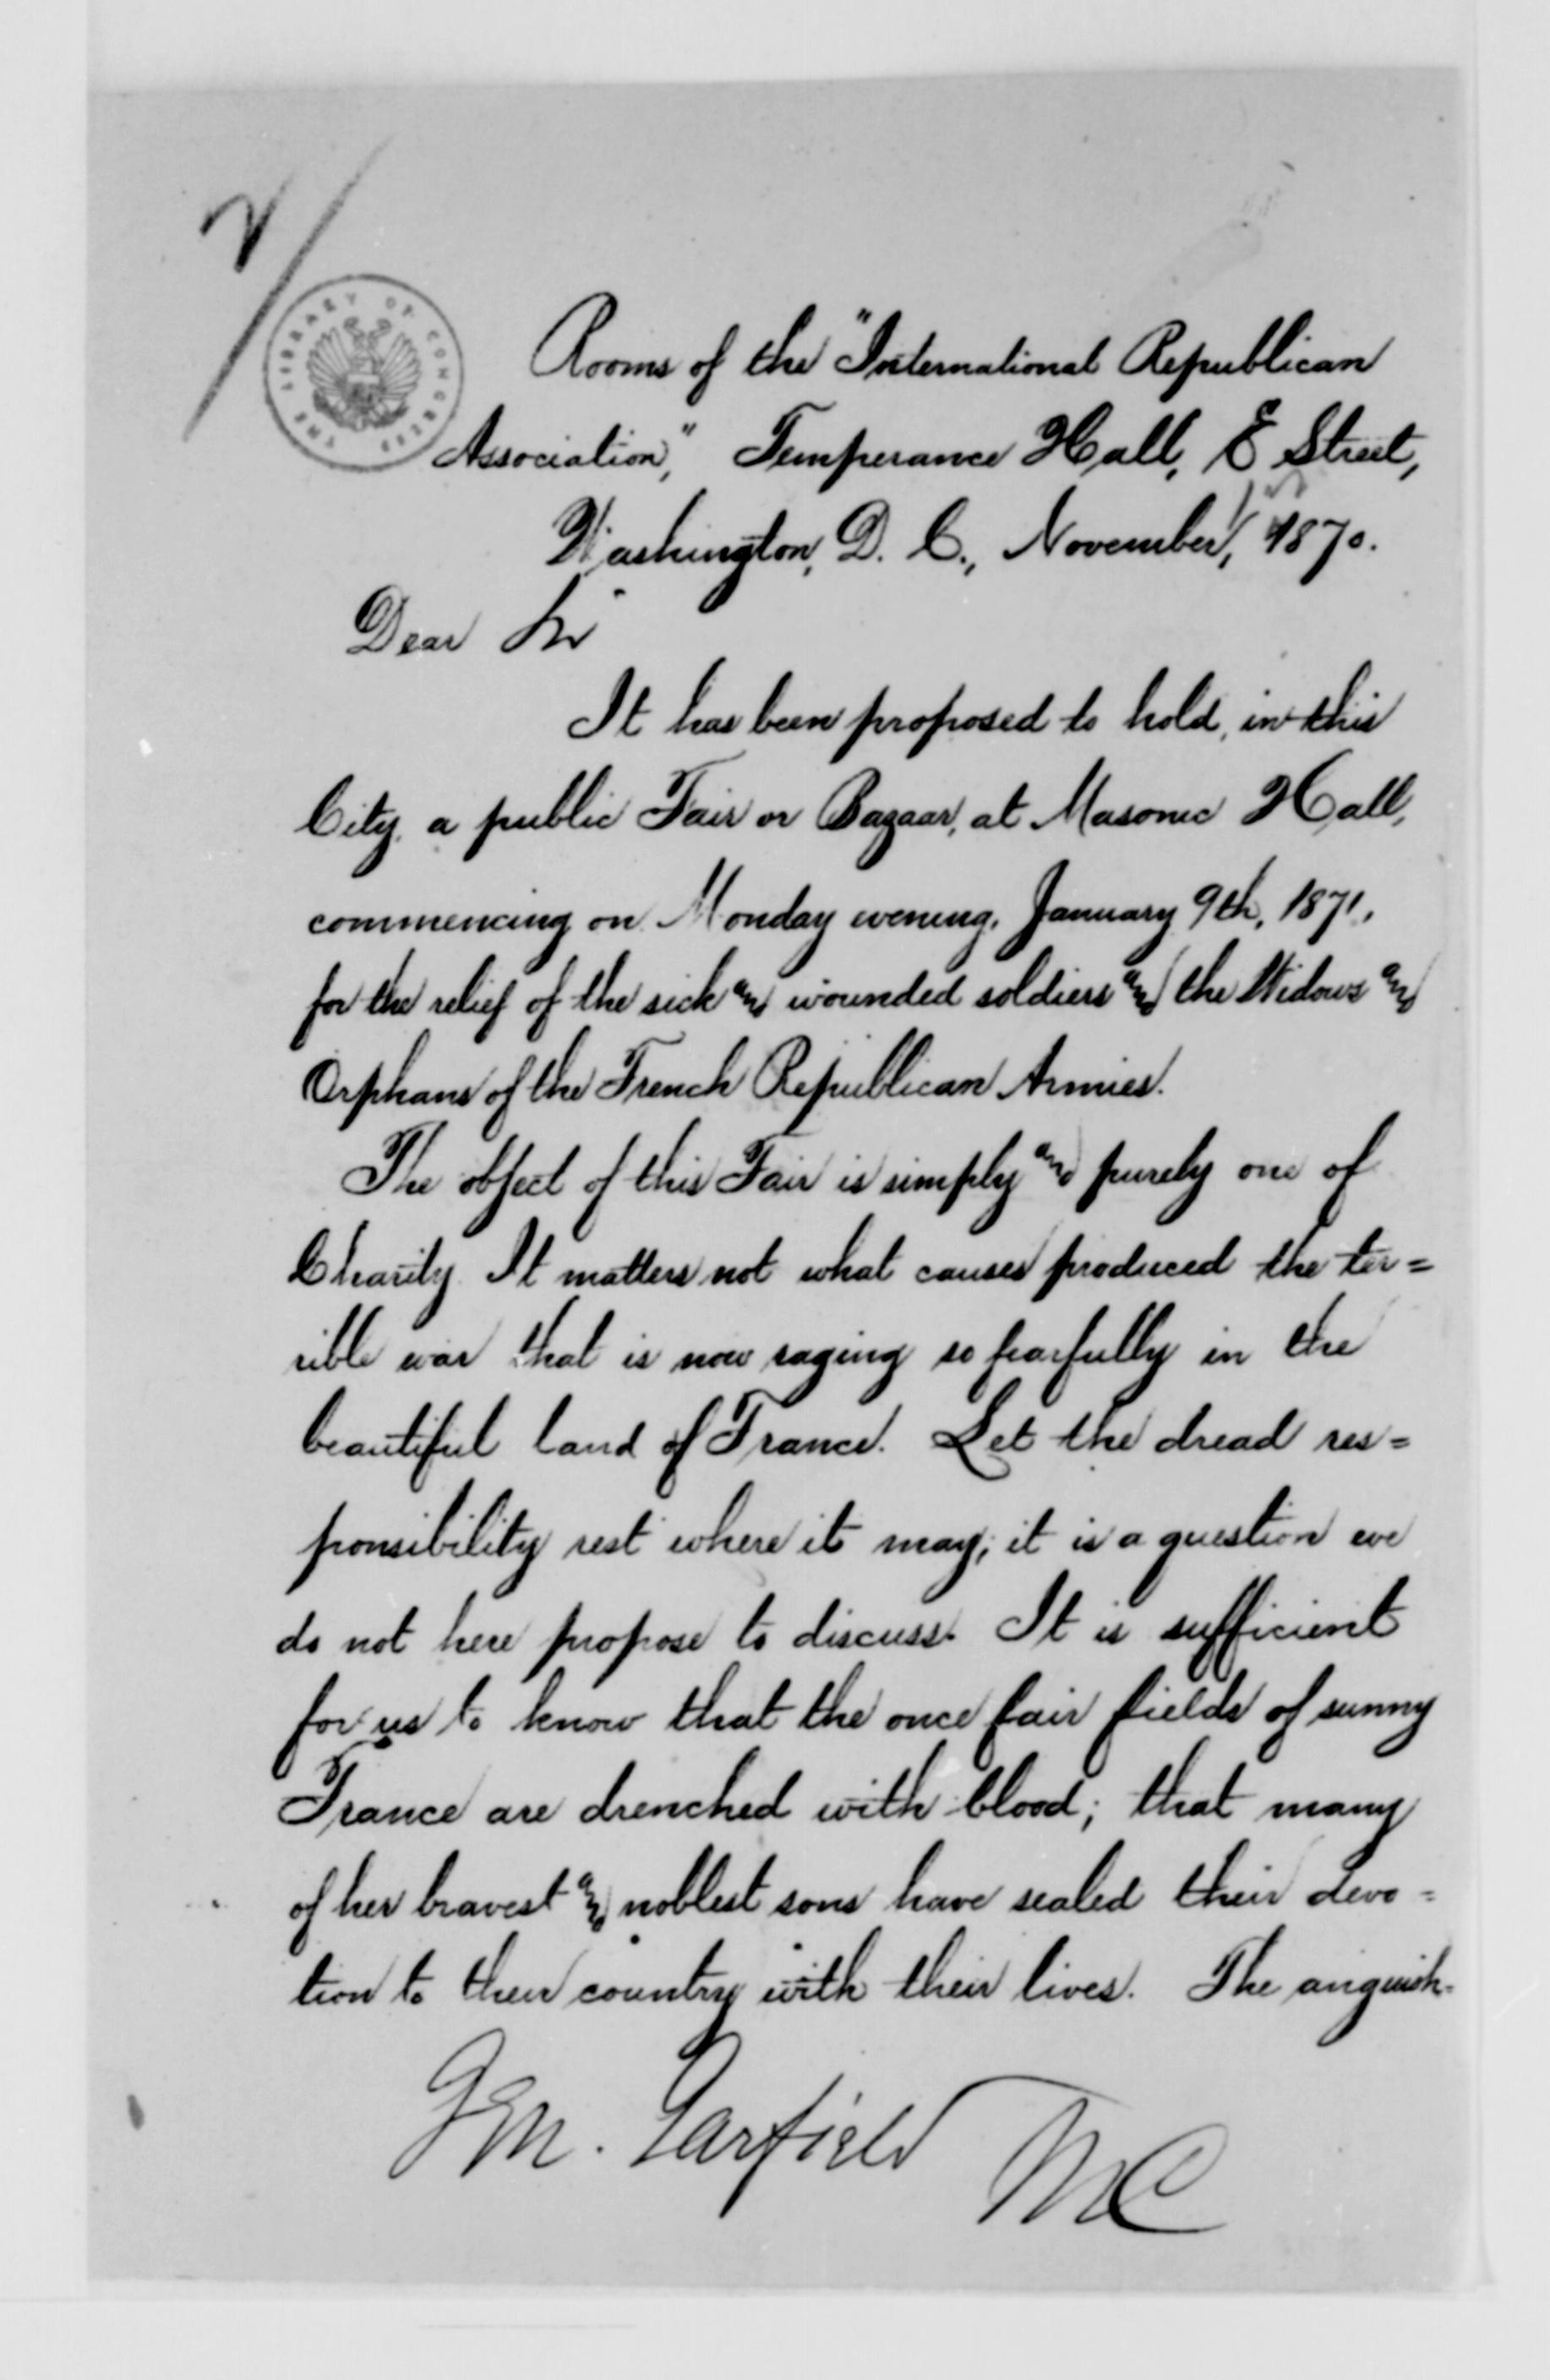 Rooms of the "International Republican
Association," Temperance Hall, E Street,
Washington, D. C., November, 1870.
Dear Sir
It has been proposed to hold, in this
City, a public Fair or Bazaar, at Masonic Hall,
commencing on Monday evening, January 9th, 1871,
for the relief of the sick and wounded soldiers and the Widows and
Orphans of the French Republican Armies.
The object of this Fair is simply and purely one of
Charity. It matters not what causes produced the ter=
rible war that is now raging so fearfully in the
beautiful land of France. Let the dread res=
ponsibility rest where it may; it is a question we
do not here propose to discuss. It is sufficient
for us to know that the once fair fields of sunny
France are drenched with blood; that many
of her bravest and noblest sons have sealed their devo=
tion to their country with their lives. The anguish-
Gen. Garfield
MC
THE LIBRARY OF CONGRESS